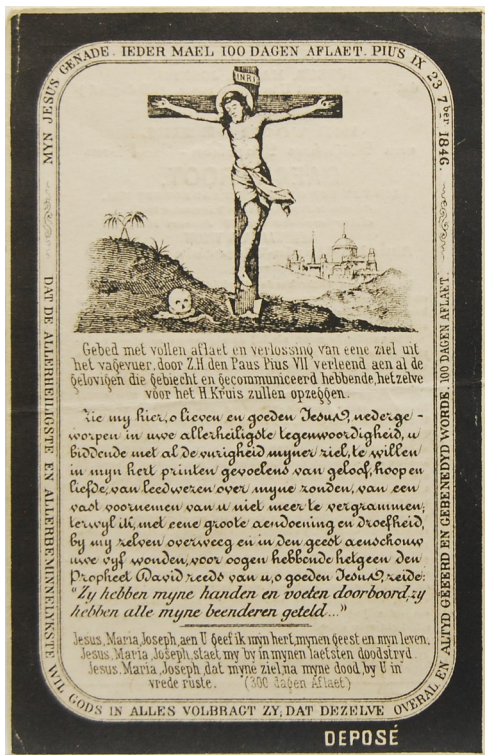 JESUS GENADE. IEDER MAEL 100 DAGEN AFLAET. PIUS IX 23 7ber 1846.
DAT DE ALLERHEILIGSTE EN ALLERBEMINNELYKSTE WIL GODS IN ALLES VOLBRAGT ZY; DAT DEZELVE OVERAL EN ALTYD GEËERD EN GEBENEDYD WORDE. 100 DAGEN AFLAET.
INRI
Gebed met vollen aflaet en verlossing van eene ziel uit
het vagevuer, door Z.H. den Paus Pius VII verleend aen al de
gelovigen die gebiecht en gecommuniceerd hebbende, hetzelve
vóór het H. Kruis zullen opzeggen.
Zie my hier, o lieven en goeden Jesus, nederge-
worpen in uwe allerheiligste tegenwoordigheid, u
biddende met al de vurigheid myner ziel, te willen
in myn hert printen gevoelens van geloof, hoop en
liefde, van leedwezen over myne zonden, van een
vast voornemen van u niet meer te vergrammen;
terwyl ik, met eene groote aendoening en droefheid,
by my zelven overweeg en in den geest aenschouw
uwe vyf wonden, voor oogen hebbende hetgeen den
Propheet David reeds van u, o goeden Jesus, zeide:
"Zy hebben myne handen en voeten doorboord, zy
hebben alle myne beenderen geteld..."
Jesus, Maria, Joseph, aen U geef ik myn hert, mynen geest en myn leven.
Jesus, Maria, Joseph, staet my by in mynen laetsten doodstryd.
Jesus, Maria, Joseph, dat myne ziel, na myne dood, by U in
vrede ruste. (300 dagen Aflaet)
DEPOSÉ